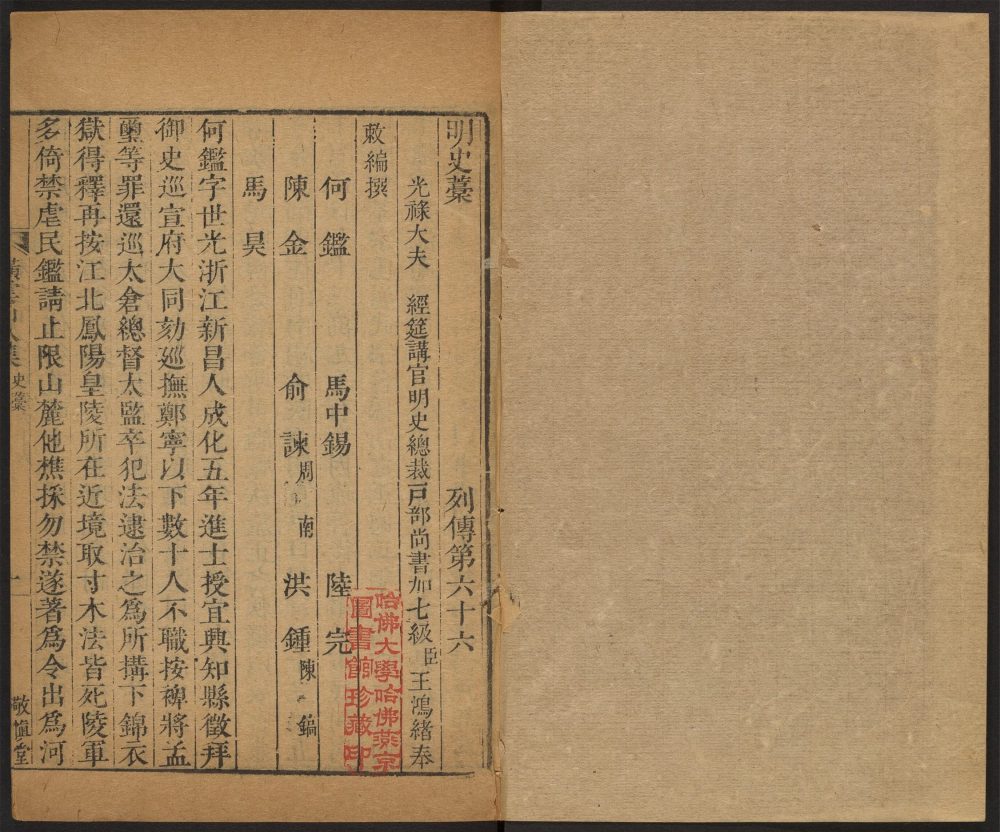 明史藁　列傳第六十六
光祿大夫　經筵講官明史總裁戸部尚書加七級臣王鴻緒奉
敕編撰
何鑑　馬中錫　陸完
陳金　俞諫周南　洪鍾陳鎬
馬昊
何鑑字世光浙江新昌人成化五年進士授宜興知縣徵拜
御史巡宣府大同劾廵撫鄭寧以下數十人不職按裨將孟
璽等罪還巡太倉總督太監卒犯法逮治之爲所搆下錦衣
獄得釋再按江北鳳陽皇陵所在近境取寸木法皆死陵軍
多倚禁虐民鑑請止限山麓他樵採勿禁遂著爲令出爲河
橫雲山人集　史藁　一　敬愼堂
哈佛大學哈佛燕京
圖書館珍藏印